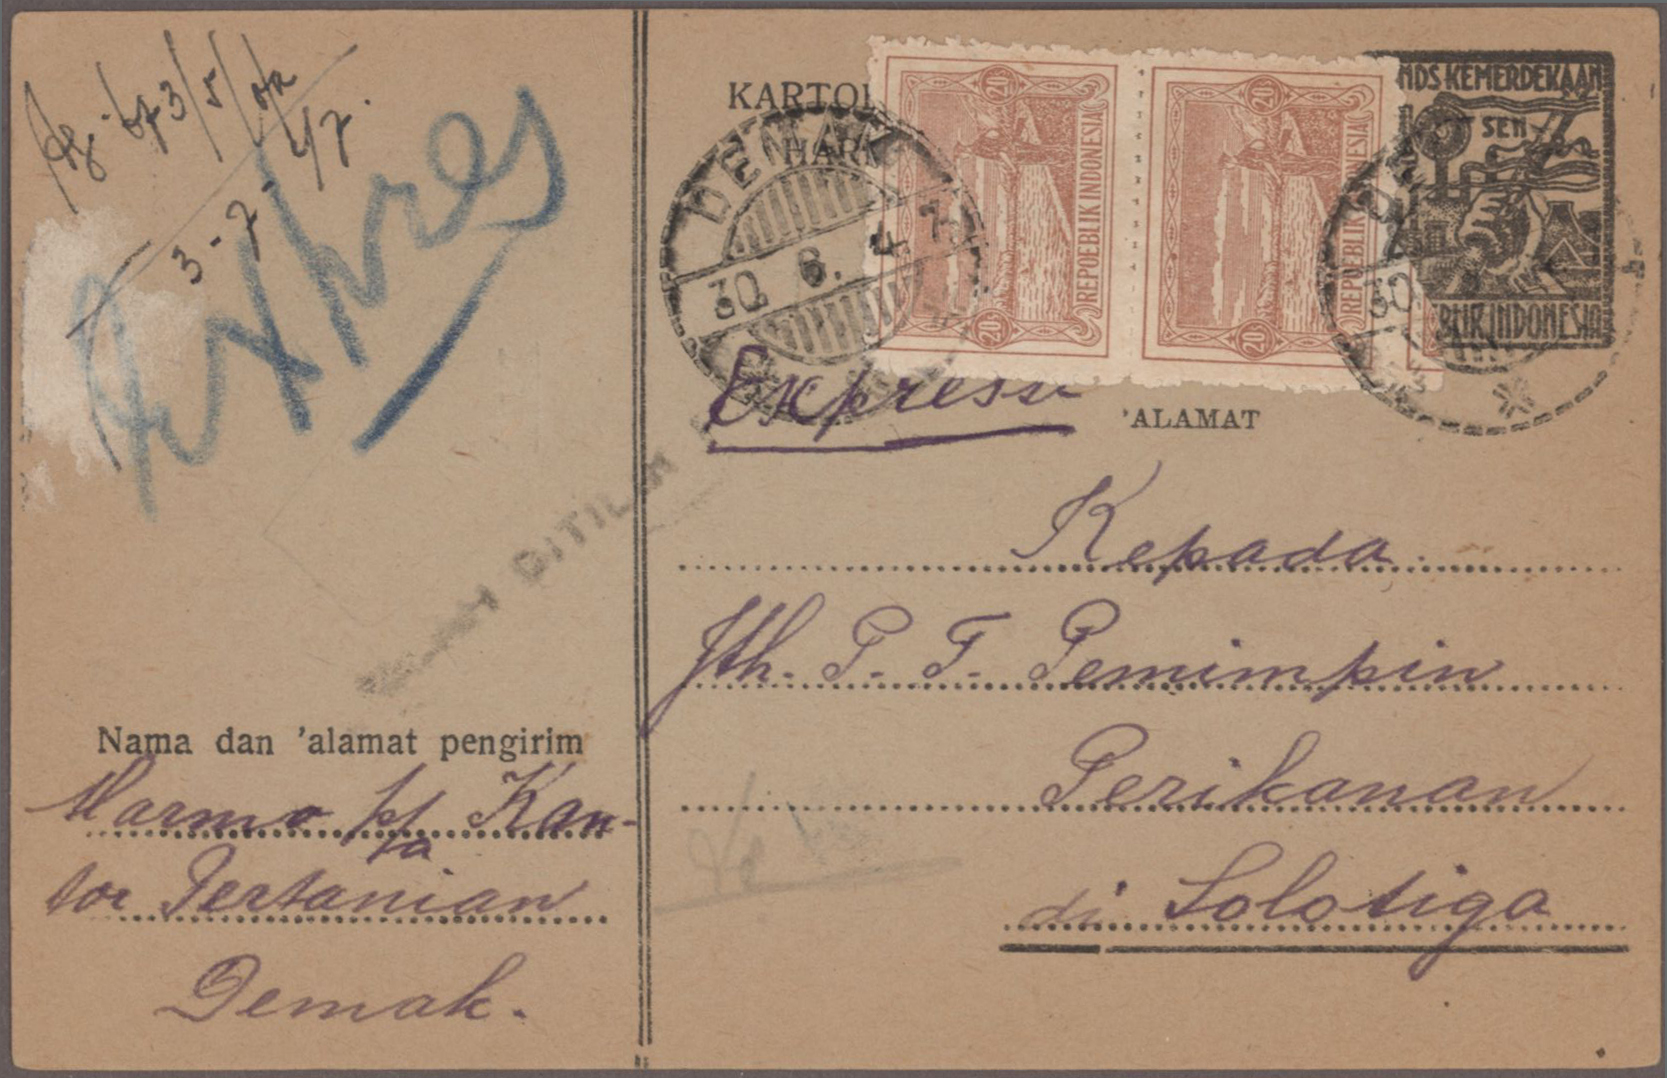 Expres
3 - 7
KARTOE
HARI
DEMAK
30. 6. 47
20s
REPOEBLIK INDONESIA
20s
20s
REPOEBLIK INDONESIA
20s
NDS KEMERDEKAAN
10 SEN
BLIK INDONESIA
30
Expresse
'ALAMAT
Kepada
Jth. P. T. Pemimpin
Perikanan
di Solotiga
DITILIK
Nama dan 'alamat pengirim
Marmo p/a Kan-
tor Pertanian
Demak.